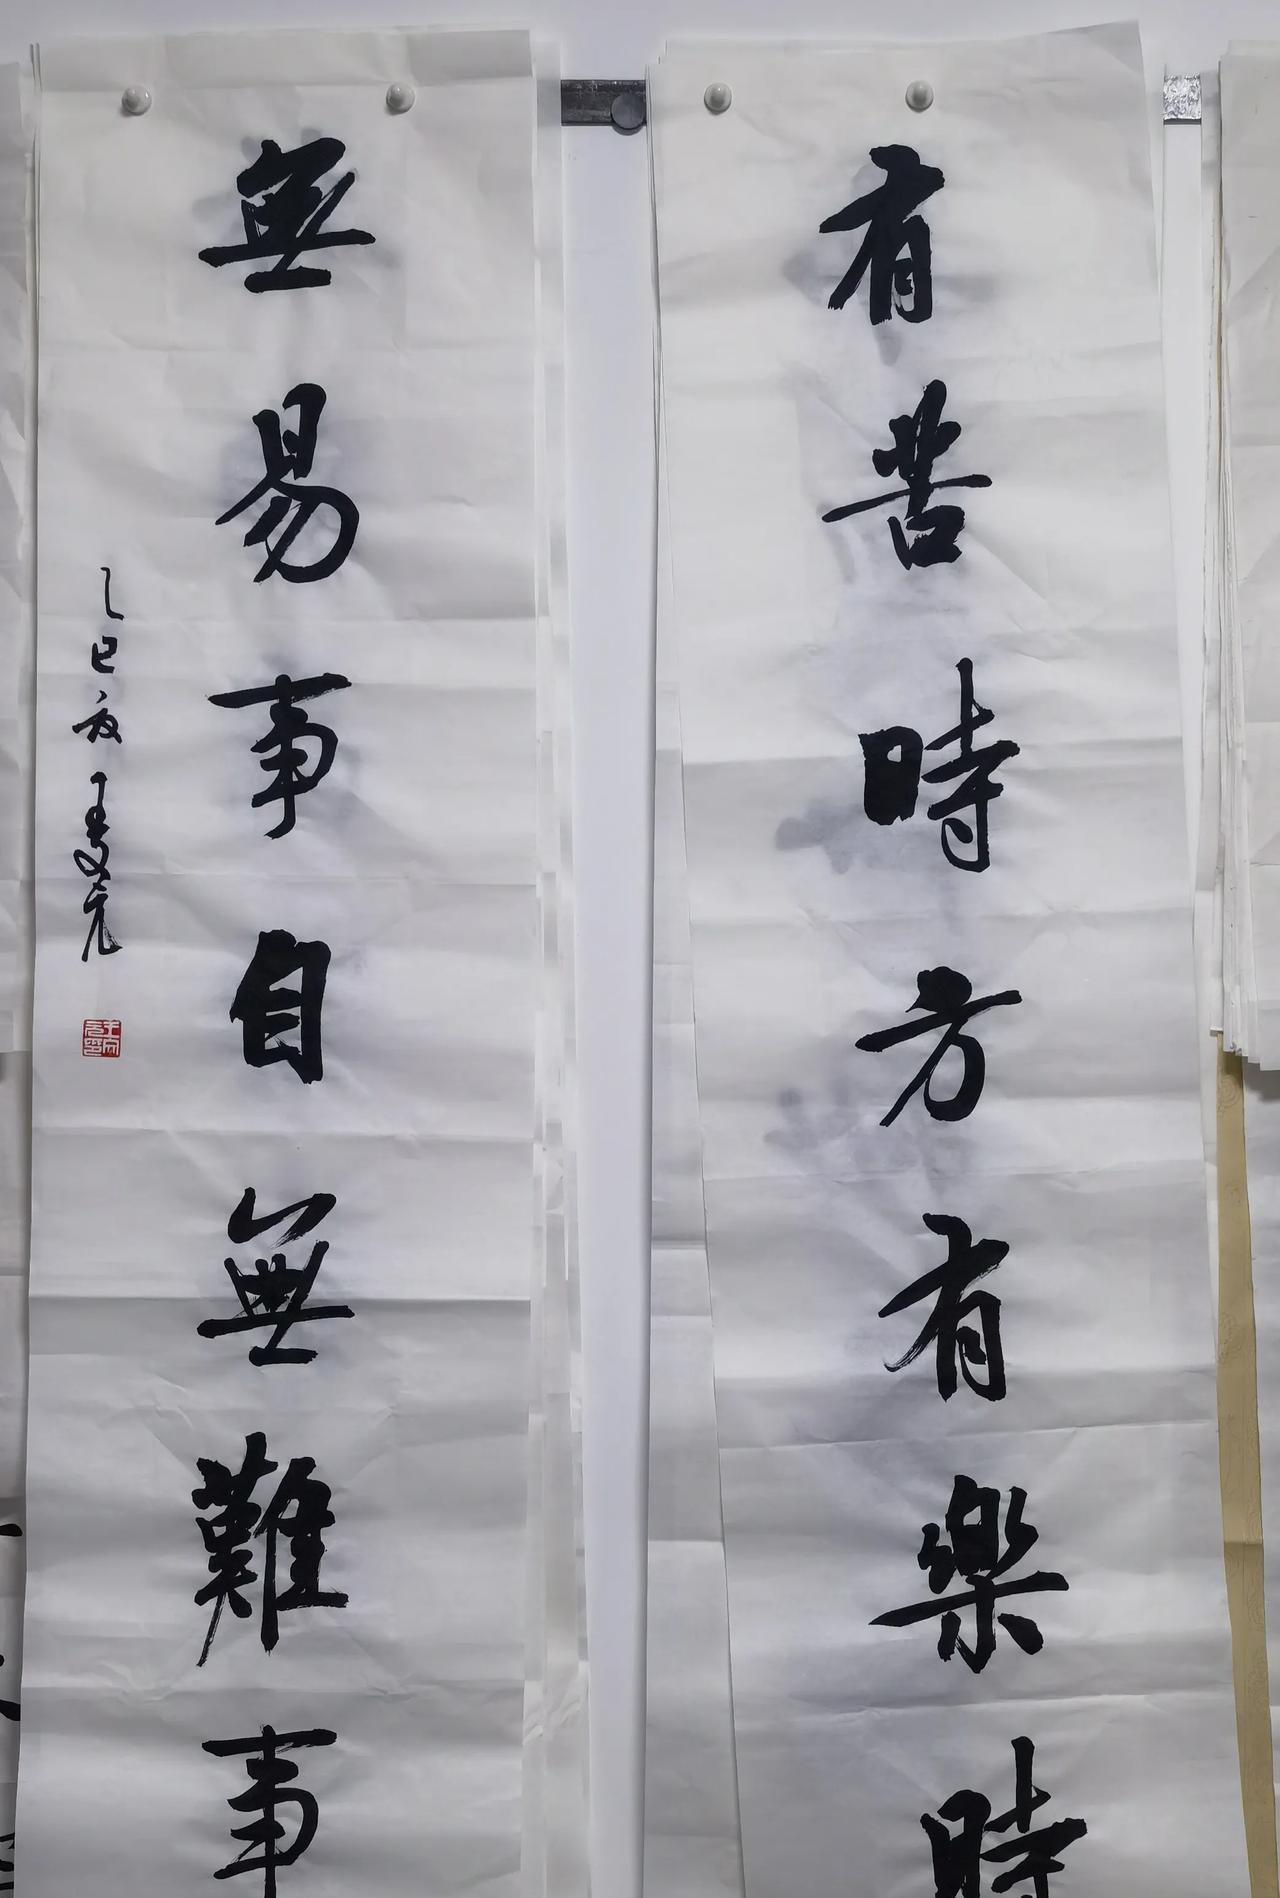 有苦時方有樂時
無易事自無難事
乙巳秋